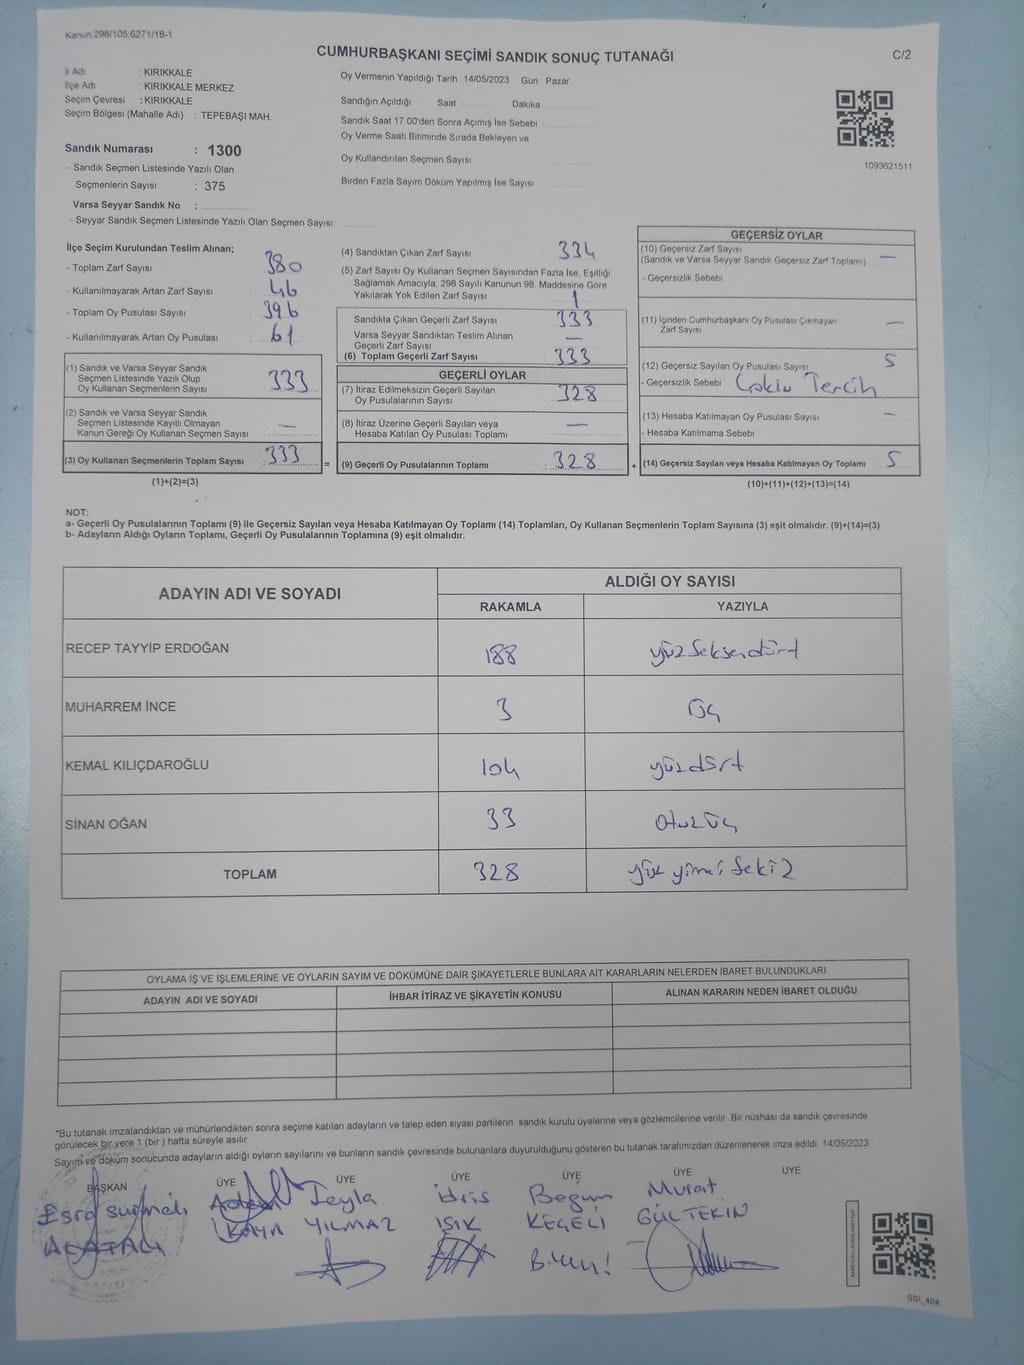 Kanun:298/105;6271/18-1
CUMHURBAŞKANI SEÇİMİ SANDIK SONUÇ TUTANAĞI
C/2
İl Adı : KIRIKKALE
İlçe Adı : KIRIKKALE MERKEZ
Seçim Çevresi : KIRIKKALE
Seçim Bölgesi (Mahalle Adı) : TEPEBAŞI MAH.
Sandık Numarası : 1300
- Sandık Seçmen Listesinde Yazılı Olan
Seçmenlerin Sayısı : 375
Varsa Seyyar Sandık No :
- Seyyar Sandık Seçmen Listesinde Yazılı Olan Seçmen Sayısı
Oy Vermenin Yapıldığı Tarih 14/05/2023 Gün : Pazar
Sandığın Açıldığı Saat Dakika
Sandık Saat 17:00'den Sonra Açımış İse Sebebi
Oy Verme Saati Bitiminde Sırada Bekleyen ve
Oy Kullandırılan Seçmen Sayısı
Birden Fazla Sayım Döküm Yapılmış İse Sayısı
1093621511
İlçe Seçim Kurulundan Teslim Alınan;
- Toplam Zarf Sayısı : 380
- Kullanılmayarak Artan Zarf Sayısı : 46
- Toplam Oy Pusulası Sayısı : 396
- Kullanılmayarak Artan Oy Pusulası : 61
(1) Sandık ve Varsa Seyyar Sandık
Seçmen Listesinde Yazılı Olup
Oy Kullanan Seçmenlerin Sayısı : 333
(2) Sandık ve Varsa Seyyar Sandık
Seçmen Listesinde Kayıtlı Olmayan
Kanun Gereği Oy Kullanan Seçmen Sayısı : —
(3) Oy Kullanan Seçmenlerin Toplam Sayısı : 333
(1)+(2)=(3)
(4) Sandıktan Çıkan Zarf Sayısı 334
(5) Zarf Sayısı Oy Kullanan Seçmen Sayısından Fazla İse, Eşitliği
Sağlamak Amacıyla; 298 Sayılı Kanunun 98. Maddesine Göre
Yakılarak Yok Edilen Zarf Sayısı 1
Sandıkta Çıkan Geçerli Zarf Sayısı 333
Varsa Seyyar Sandıktan Teslim Alınan
Geçerli Zarf Sayısı —
(6) Toplam Geçerli Zarf Sayısı 333
GEÇERLİ OYLAR
(7) İtiraz Edilmeksizin Geçerli Sayılan
Oy Pusulalarının Sayısı : 328
(8) İtiraz Üzerine Geçerli Sayılan veya
Hesaba Katılan Oy Pusulası Toplamı : —
= (9) Geçerli Oy Pusulalarının Toplamı : 328
GEÇERSİZ OYLAR
(10) Geçersiz Zarf Sayısı
(Sandık ve Varsa Seyyar Sandık Geçersiz Zarf Toplamı) —
- Geçersizlik Sebebi :
(11) İçinden Cumhurbaşkanı Oy Pusulası Çıkmayan
Zarf Sayısı —
(12) Geçersiz Sayılan Oy Pusulası Sayısı 5
- Geçersizlik Sebebi : Çoklu Tercih
(13) Hesaba Katılmayan Oy Pusulası Sayısı —
- Hesaba Katılmama Sebebi :
+ (14) Geçersiz Sayılan veya Hesaba Katılmayan Oy Toplamı : 5
(10)+(11)+(12)+(13)=(14)
NOT:
a- Geçerli Oy Pusulalarının Toplamı (9) ile Geçersiz Sayılan veya Hesaba Katılmayan Oy Toplamı (14) Toplamları, Oy Kullanan Seçmenlerin Toplam Sayısına (3) eşit olmalıdır. (9)+(14)=(3)
b- Adayların Aldığı Oyların Toplamı, Geçerli Oy Pusulalarının Toplamına (9) eşit olmalıdır.
ADAYIN ADI VE SOYADI ALDIĞI OY SAYISI
RAKAMLA YAZIYLA
RECEP TAYYİP ERDOĞAN 188 yüzseksendört
MUHARREM İNCE 3 Üç
KEMAL KILIÇDAROĞLU 104 yüzdört
SİNAN OĞAN 33 otuzüç
TOPLAM 328 yüz yirmi sekiz
OYLAMA İŞ VE İŞLEMLERİNE VE OYLARIN SAYIM VE DÖKÜMÜNE DAİR ŞİKAYETLERLE BUNLARA AİT KARARLARIN NELERDEN İBARET BULUNDUKLARI
ADAYIN ADI VE SOYADI İHBAR İTİRAZ VE ŞİKAYETİN KONUSU ALINAN KARARIN NEDEN İBARET OLDUĞU
*Bu tutanak imzalandıktan ve mühürlendikten sonra seçime katılan adayların ve talep eden siyasi partilerin sandık kurulu üyelerine veya gözlemcilerine verilir. Bir nüshası da sandık çevresinde
görülecek bir yere 1 (bir ) hafta süreyle asılır.
Sayım ve döküm sonucunda adayların aldığı oyların sayılarını ve bunların sandık çevresinde bulunanlara duyurulduğunu gösteren bu tutanak tarafımızdan düzenlenerek imza edildi. 14/05/2023
BAŞKAN ÜYE ÜYE ÜYE ÜYE ÜYE ÜYE
Esra
KAYA
Leyla
YILMAZ
İdris
IŞIK
Begüm
KEÇELİ
Murat
GÜLTEKİN
SSI_404